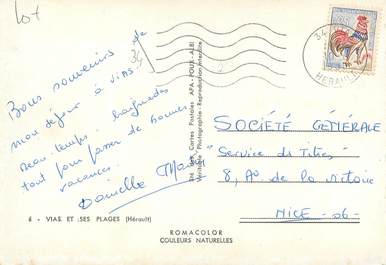 Lot
34
34
HERAULT
Bons souvenirs de
mon séjour à VIAS.
Beau temps, baignades
tout pour passer de bonnes
vacances.
Danielle
Sté des Cartes Postales APA - POUX - ALBI
Véritable Photographie - Reproduction Interdite
SOCIÉTÉ GÉNÉRALE
"Service des Titres"
8, Av. de la Victoire
NICE - 06 -
6 - VIAS ET SES PLAGES (Hérault)
ROMACOLOR
COULEURS NATURELLES